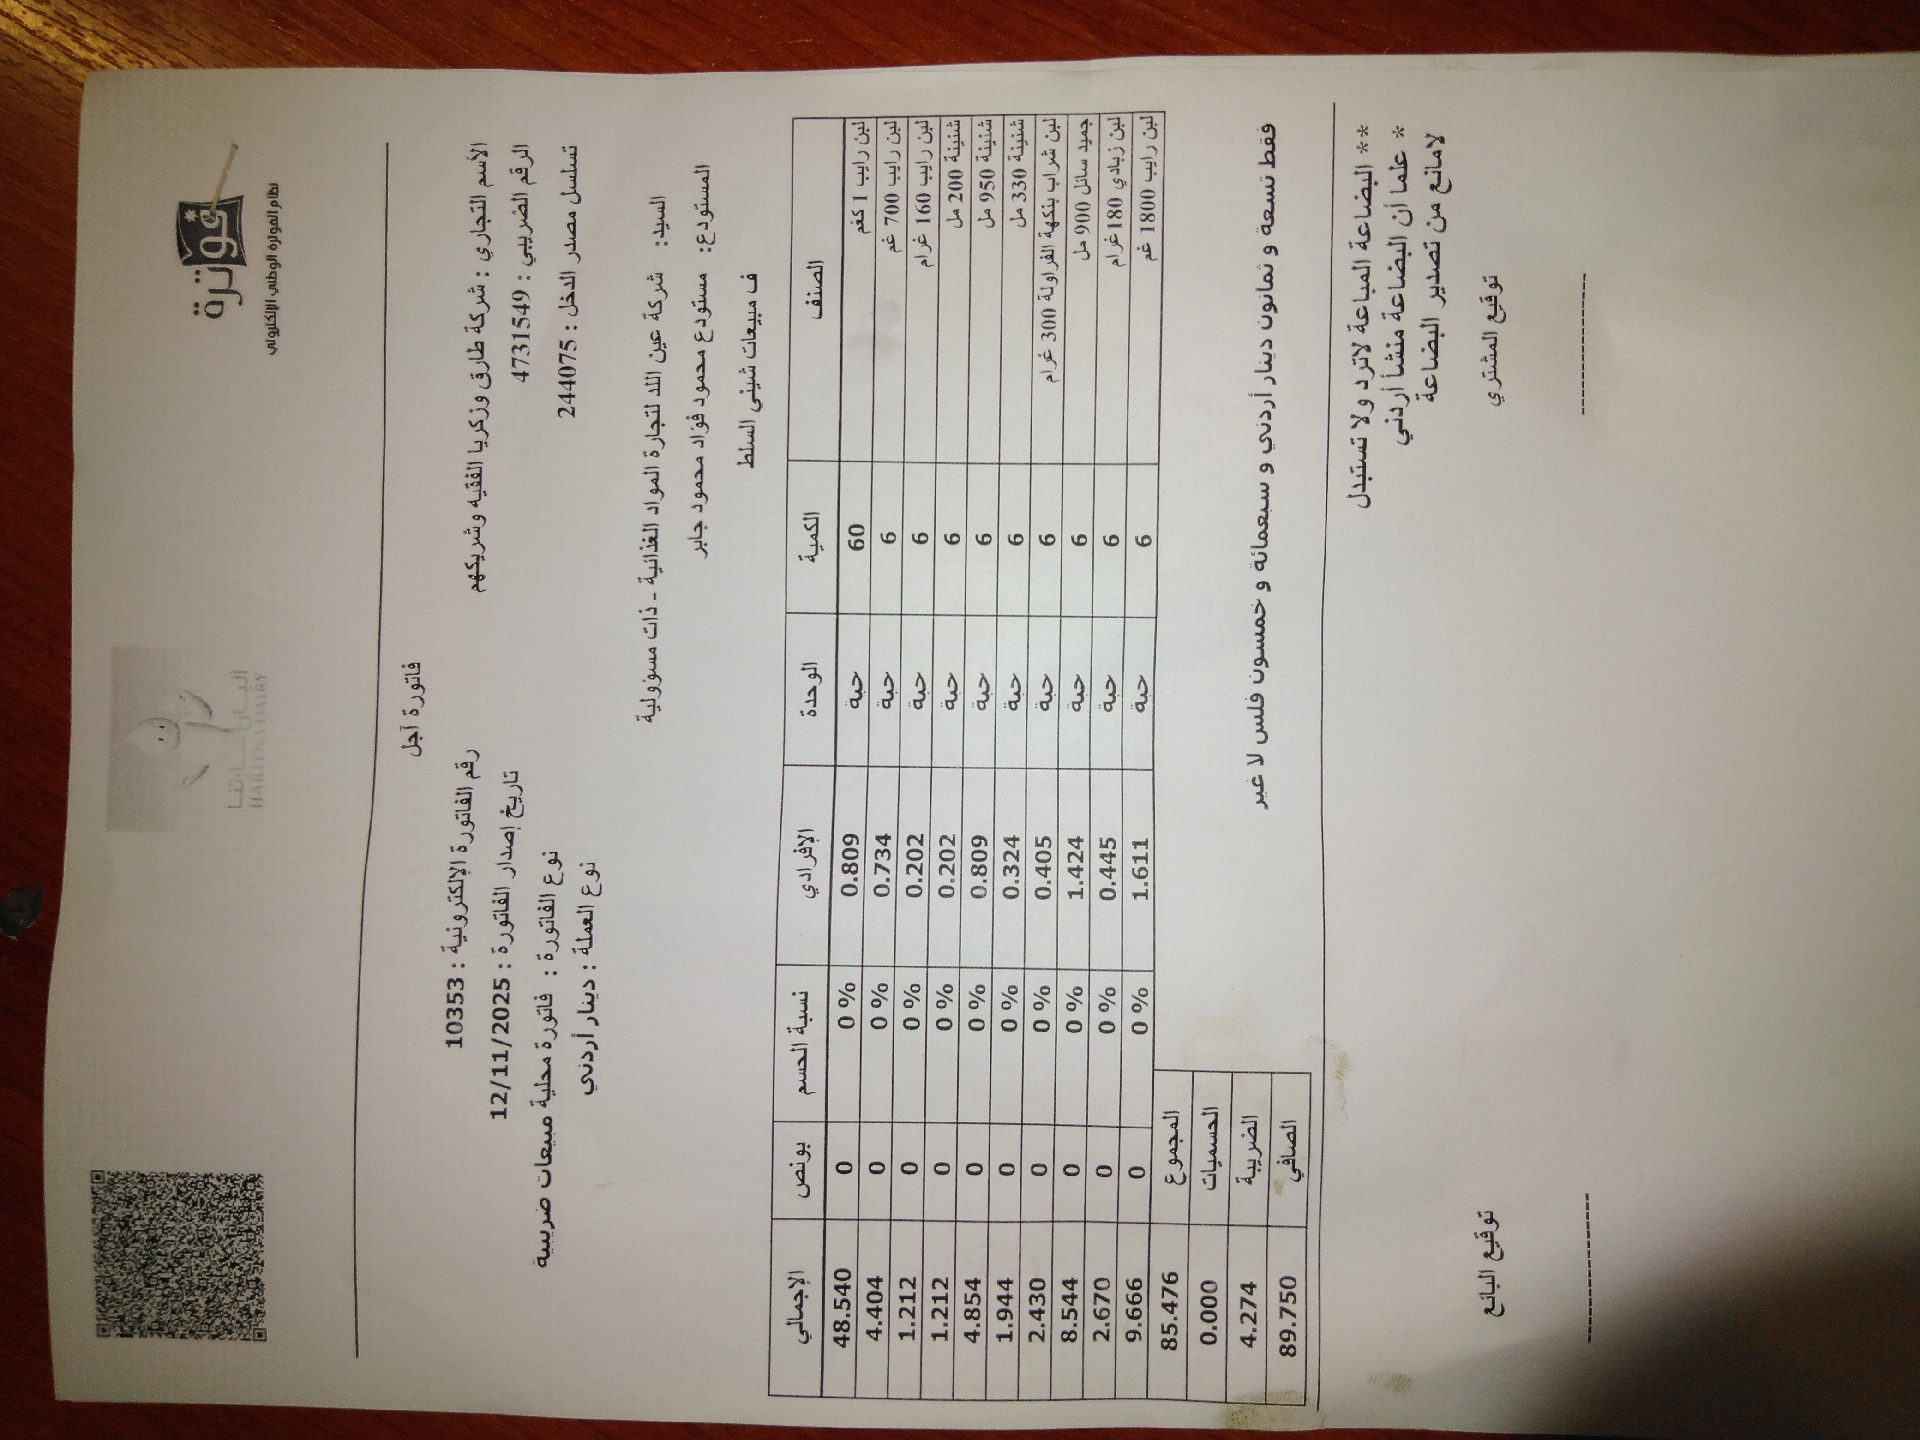 فوترة
نظام الفوترة الوطني الإلكتروني
ألبان حارتنا
HARITNA DAIRY
فاتورة آجل
الأسم التجاري : شركة طارق وزكريا الفقيه وشريكهم
رقم الفاتورة الإلكترونية : 10353
الرقم الضريبي : 4731549
تاريخ إصدار الفاتورة : 12/11/2025
تسلسل مصدر الدخل : 244075
نوع الفاتورة : فاتورة محلية مبيعات ضريبية
نوع العملة : دينار أردني
السيد: شركة عين اللد لتجارة المواد الغذائية - ذات مسؤولية
المستودع: مستودع محمود فؤاد محمود جابر
ف مبيعات شيني السلط
الصنف الكمية الوحدة الإفرادي نسبة الحسم بونص الإجمالي
لبن رايب 1 كغم 60 حبة 0.809 0 % 0 48.540
لبن رايب 700 غم 6 حبة 0.734 0 % 0 4.404
لبن رايب 160 غرام 6 حبة 0.202 0 % 0 1.212
شنينة 200 مل 6 حبة 0.202 0 % 0 1.212
شنينة 950 مل 6 حبة 0.809 0 % 0 4.854
شنينة 330 مل 6 حبة 0.324 0 % 0 1.944
لبن شراب بنكهة الفراولة 300 غرام 6 حبة 0.405 0 % 0 2.430
جميد سائل 900 مل 6 حبة 1.424 0 % 0 8.544
لبن زبادي 180غرام 6 حبة 0.445 0 % 0 2.670
لبن رايب 1800 غم 6 حبة 1.611 0 % 0 9.666
المجموع 85.476
الحسميات 0.000
الضريبة 4.274
الصافي 89.750
فقط تسعة و ثمانون دينار أردني و سبعمائة و خمسون فلس لا غير
** البضاعة المباعة لاترد ولا تستبدل
* علما أن البضاعة منشأ أردني
لامانع من تصدير البضاعة
توقيع المشتري
توقيع البائع